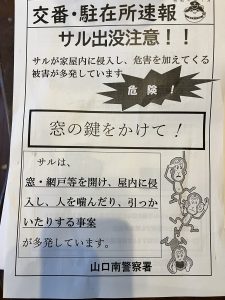 交番・駐在所速報
サル出没注意！！
サルが家屋内に侵入し、危害を加えてくる
被害が多発しています。
危険！
窓の鍵をかけて！
サルは、
窓・網戸等を開け、屋内に侵
入し、人を噛んだり、引っか
いたりする事案
が多発しています。
山口南警察署